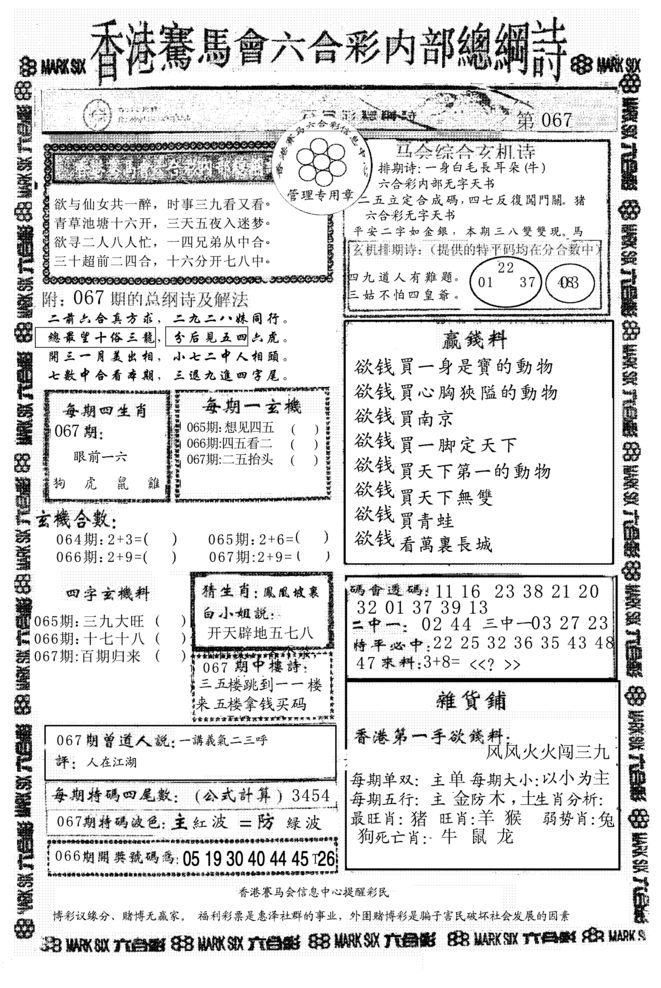 香港騫馬會六合彩内部總綱詩
MARK SIX
MARK SIX
第 067
香港赛马六合彩信息中心
管理专用章
欲与仙女共一醉，时事三九看又看。
青草池塘十六开，三天五夜入迷梦。
欲寻二人八人忙，一四兄弟从中合。
三十超前二四合，十六分开七八中。
马会综合玄机诗
排期诗:一身白毛長耳朵(牛)
六合彩内部无字天书
二五立定合成码,四七反復閙門關。猪
六合彩无字天书
平安二字如金銀，本期三八雙雙現。馬
玄机排期诗:（提供的特平码均在分合数中）
四九道人有難題。
三姑不怕四皇爺。
22
01 37
附: 067 期的总纲诗及解法
二前六合真方求，二九二八妹同行。
總最望十俗三龍，分后見五四六虎。
開三一月美出相，小七二中人相頭。
七數中合看本期，三退九進四字尾。
每期四生肖
067 期:
眼前一六
狗 虎 鼠 雞
每期一玄機
065期:想见四五 ( )
066期:四五看二 ( )
067期:二五抬头 ( )
赢錢料
欲钱買一身是寳的動物
欲钱買心胸狹隘的動物
欲钱買南京
欲钱買一脚定天下
欲钱買天下第一的動物
欲钱買天下無雙
欲钱買青蛙
欲钱看萬裏長城
玄機合數:
064期:2+3=( ) 065期:2+6=( )
066期:2+9=( ) 067期:2+9=( )
四字玄機料
065期:三九大旺 ( )
066期:十七十八 ( )
067期:百期归来 ( )
猜生肖:鳳凰坡裏
白小姐説:
开天辟地五七八
067 期中樓詩:
三五楼跳到一一楼
来五楼拿钱买码
碼會透码: 11 16 23 38 21 20
32 01 37 39 13
二中一: 02 44 三中一 03 27 23
特平必中: 22 25 32 36 35 43 48
47 來料:3+8= <<? >>
067期曾道人説:一講義氣二三呼
評: 人在江湖
每期特碼四尾數: (公式計算) 3454
067期特碼波色:主紅波 =防 绿波
066期開獎號碼悉:05 19 30 40 44 45 T26
雜貨鋪
香港第一手欲錢料:
风风火火闯三九
每期单双: 主单 每期大小:以小为主
每期五行: 主 金防木，土生肖分析:
最旺肖: 猪 旺肖:羊 猴 弱势肖:兔
狗死亡肖: 牛 鼠 龙
香港賽马会信息中心提醒彩民
博彩议缘分、赌博无赢家， 福利彩票是惠泽社群的事业，外围赌博彩是骗子害民破坏社会发展的因素
MARK SIX 六合彩 MARK SIX 六合彩 MARK SIX 六合彩 MARK SIX 六合彩 MARK S